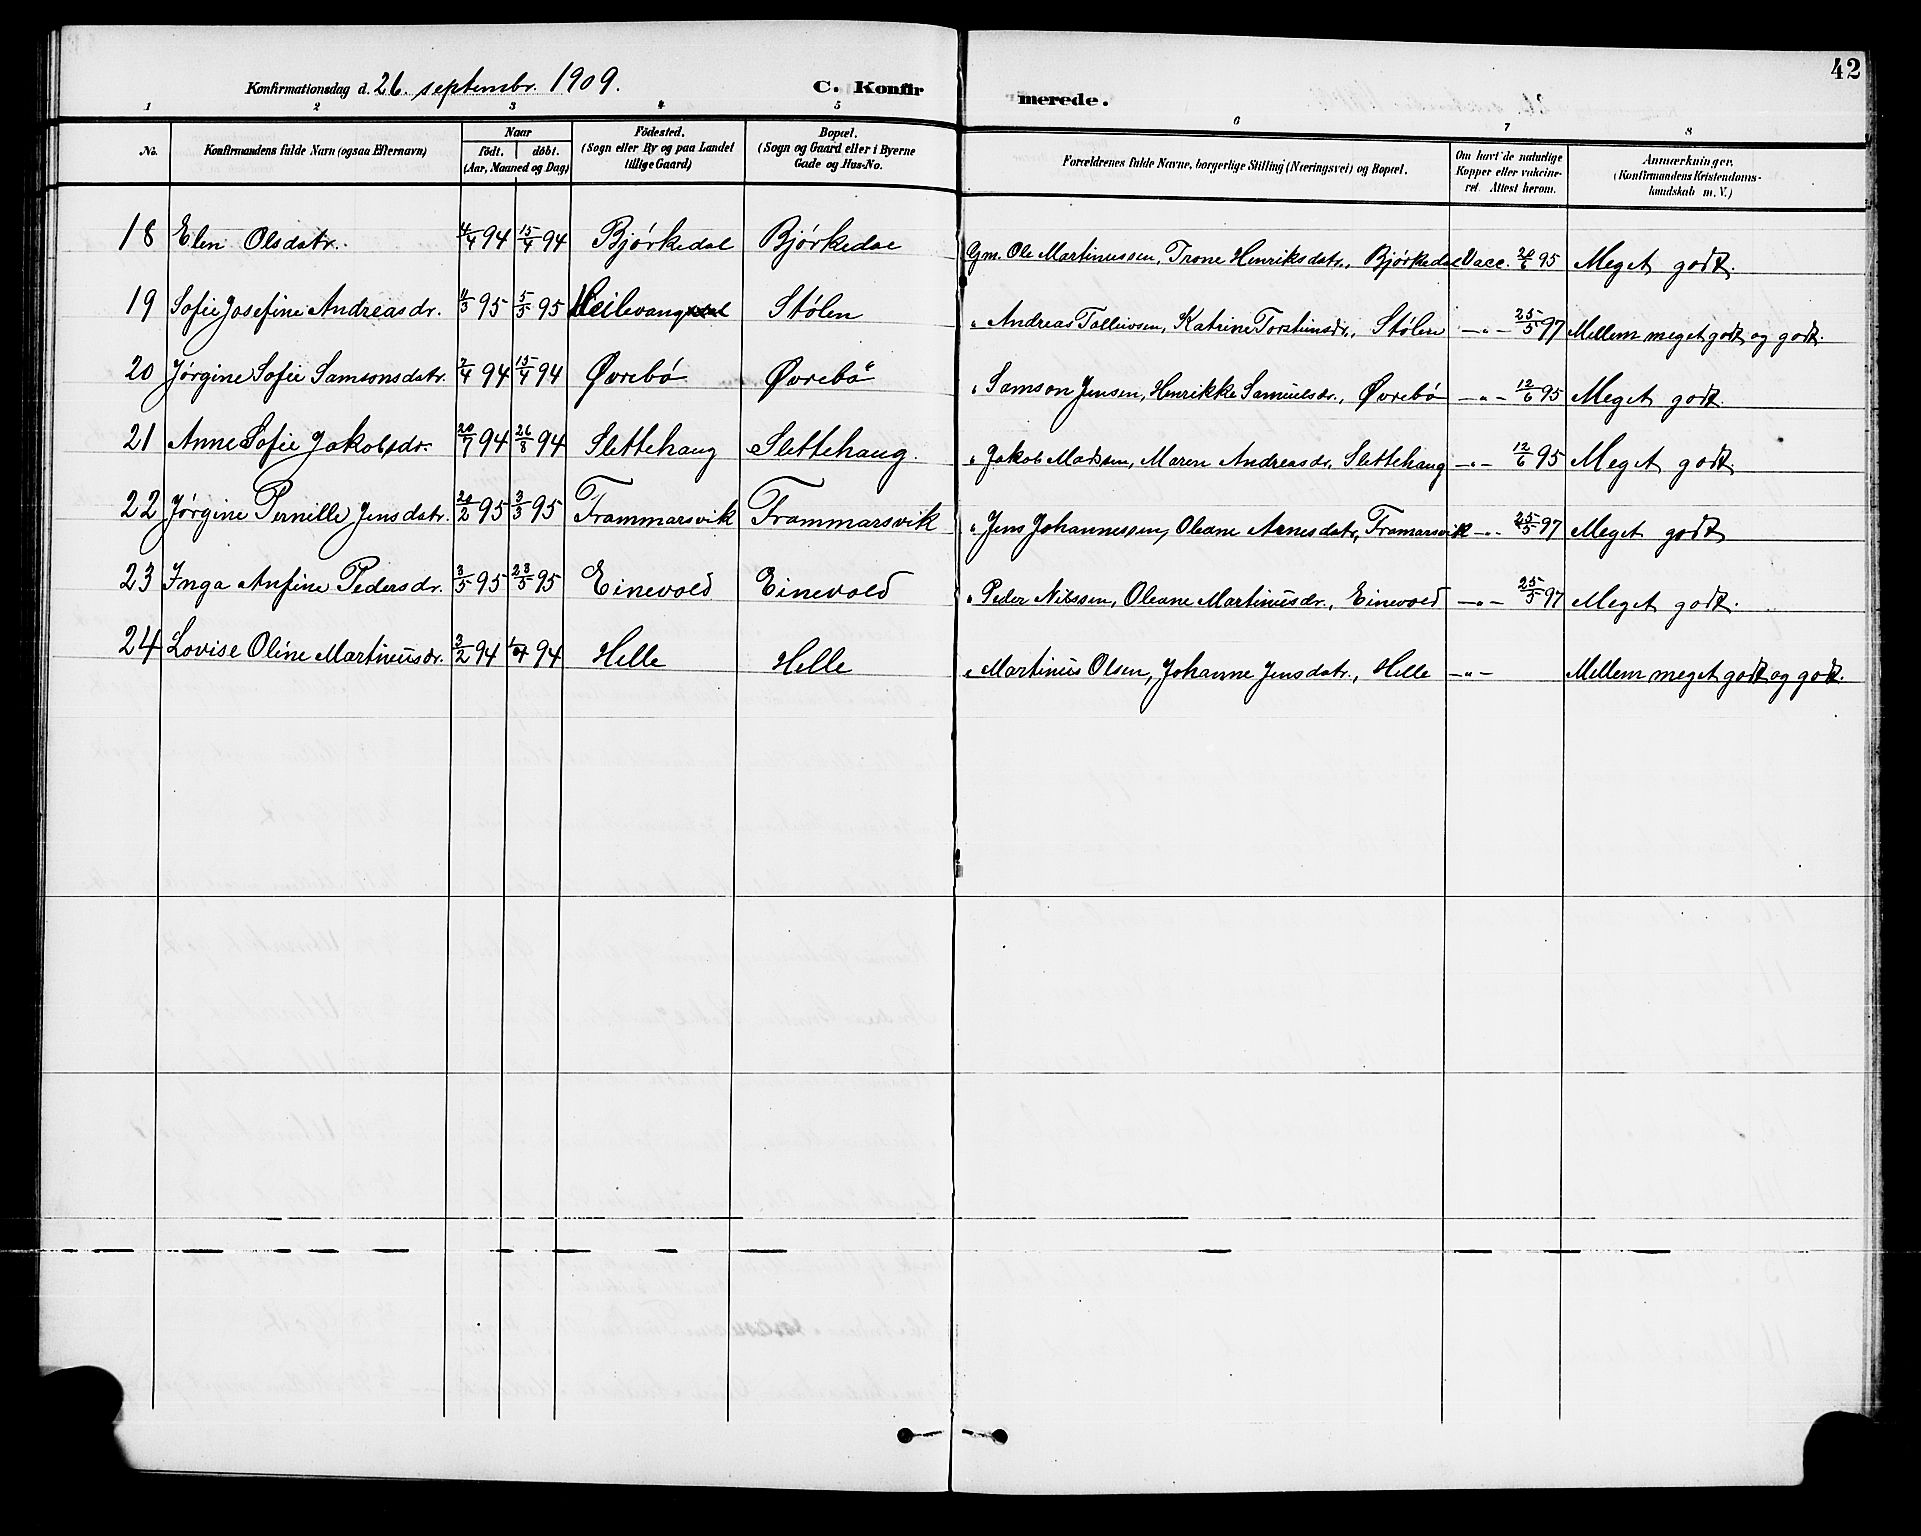 42
Konfirmationsdag d. 26. septembr. 1909. C. Konfir merede.
1 2 3 4 5 6 7 8
No.
Konfirmandens fulde Navn (ogsaa Efternavn)
Naar
födt. döbt.
(Aar, Maaned og Dag)
Födested.
(Sogn eller By og paa Landet
tillige Gaard)
Bopæl.
(Sogn og Gaard eller i Byerne
Gade og Hus-No.
Forældrenes fulde Navne, borgerlige Stilling (Næringsvei) og Bopæl.
Om havt de naturlige
Kopper eller vakcine-
ret. Attest herom.
Anmærkninger.
(Konfirmandens Kristendoms-
kundskab m. V.)
18 Elen Olsdatr. 4/4 94 15/4 94 Bjørkedal Bjørkedal Gm. Ole Martinussen, Trone Henriksdatr., Bjørkedal Vacc. 20/6 95 Meget godt.
19 Sofie Josefine Andreasdr. 11/3 95 5/5 95 Heilevang Stølen " Andreas Tolleivsen, Katrine Torsteinsdr., Stølen —"— 25/5 97 Mellem meget godt og godt.
20 Jørgine Sofie Samsonsdatr. 2/4 94 15/4 94 Øvrebø Øvrebø " Samson Jensen, Henrikke Samuelsdr., Øvrebø —"— 12/6 95 Meget godt.
21 Anne Sofie Jakobsdr. 20/7 94 26/8 94 Slettehaug Slettehaug. " Jakob Madsen, Maren Andreasdr, Slettehaug —"— 12/6 95 Meget godt.
22 Jørgine Pernille Jensdatr. 20/2 95 3/3 95 Frammarsvik Frammarsvik " Jens Johannessen, Oleane Arnesdatr, Framarsvik —"— 25/5 97 Meget godt
23 Inga Anfine Pedersdr. 3/5 95 23/5 95 Einevold Einevold " Peder Nilssen, Oleane Martinusdr., Einevold —"— 25/5 97 Meget godt.
24 Lovise Oline Martinusdr. 3/2 94 94 Helle Helle " Martinus Olsen, Johanne Jensdatr., Helle —"— Mellem meget godt og godt.